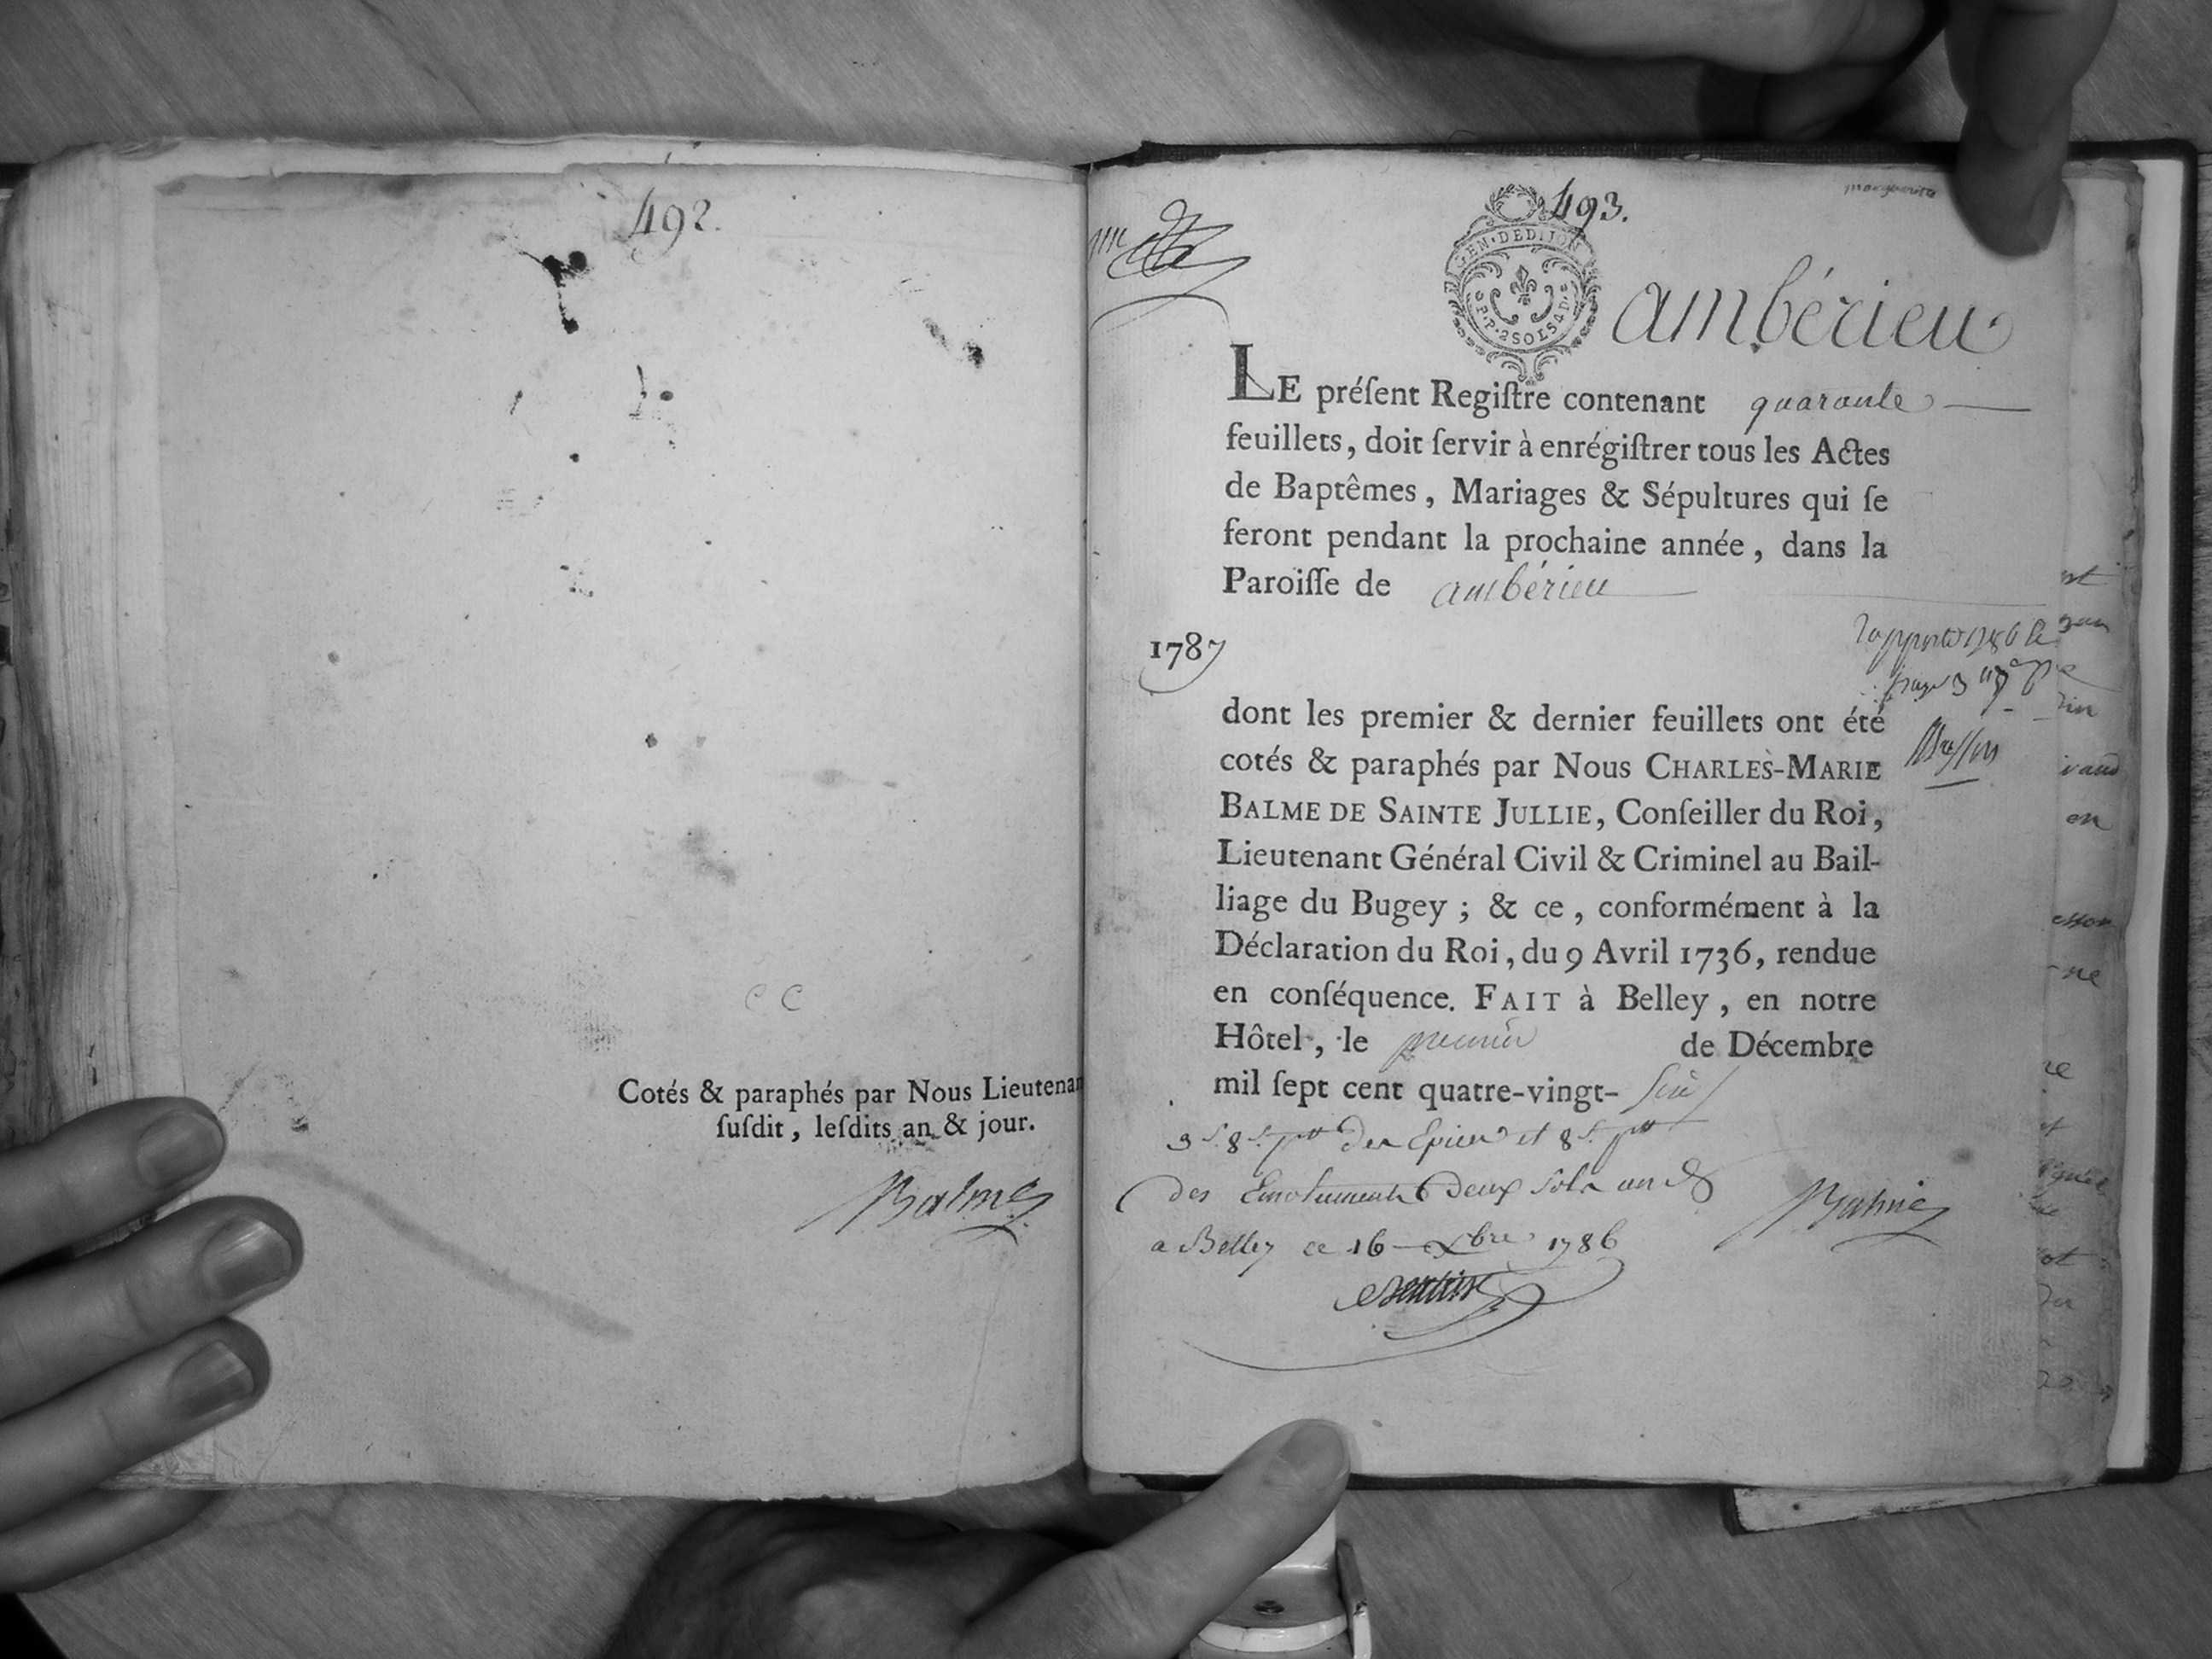 492.
Cotés & paraphés par Nous Lieutenan
ſuſdit, leſdits an & jour.
Balme
493.
GEN·DEDIJON
P·P·2SOLS4D
ambérieu
LE préſent Regiſtre contenant quarante
feuillets, doit ſervir à enrégiſtrer tous les Actes
de Baptêmes, Mariages & Sépultures qui ſe
feront pendant la prochaine année, dans la
Paroiſſe de ambérieu
1787
dont les premier & dernier feuillets ont été
cotés & paraphés par Nous CHARLES-MARIE
BALME DE SAINTE JULLIE, Conſeiller du Roi,
Lieutenant Général Civil & Criminel au Bail-
liage du Bugey; & ce, conformément à la
Déclaration du Roi, du 9 Avril 1736, rendue
en conſéquence. FAIT à Belley, en notre
Hôtel, le premier de Décembre
mil ſept cent quatre-vingt- six
3 s. 8 d. pr des Epices et 8 s. pr
des Emoluments deux sols
a Belley ce 16 Xbre 1786
Balme